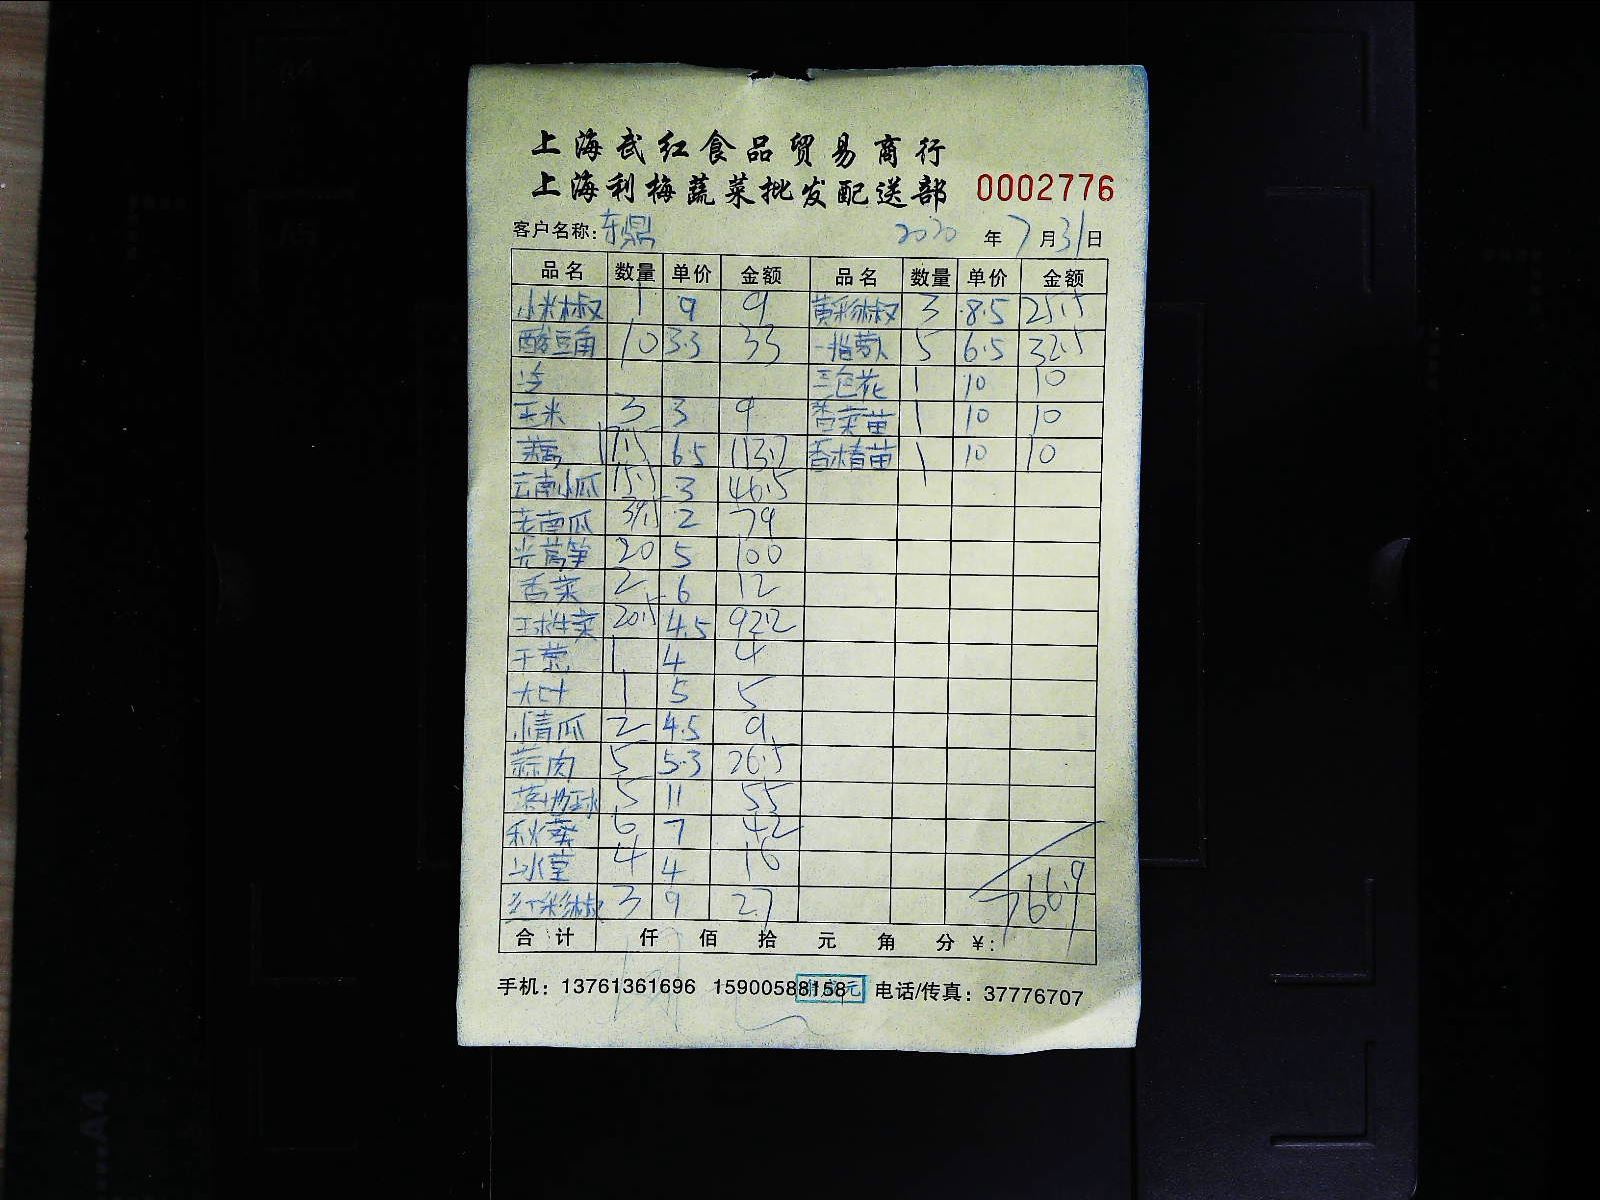 上海武红食品贸易商行
上海利梅蔬菜批发配送部 0002776
客户名称: 东鼎 2020 年 7 月 31 日
品名 数量 单价 金额 品名 数量 单价 金额
小米椒 1 9 9 黄彩椒 3 8.5 25.5
酸豆角 10 3.3 33 一指萝卜 5 6.5 32.5
三色花 1 10 10
玉米 3 3 9 香菜苗 1 10 10
藕 17.5 6.5 113.7 香椿苗 1 10 10
云南小瓜 15.5 3 46.5
老南瓜 39.5 2 79
光莴笋 20 5 100
香菜 2 6 12
球生菜 20.5 4.5 92.2
干葱 1 4 4
大叶 1 5 5
小青瓜 2 4.5 9
蒜肉 5 5.3 26.5
5 11 55
秋葵 6 7 42
冰堂 4 4 16
红彩椒 3 9 27
766.9
合计 仟 佰 拾 元 角 分 ¥:
手机: 13761361696 15900588158 电话/传真: 37776707